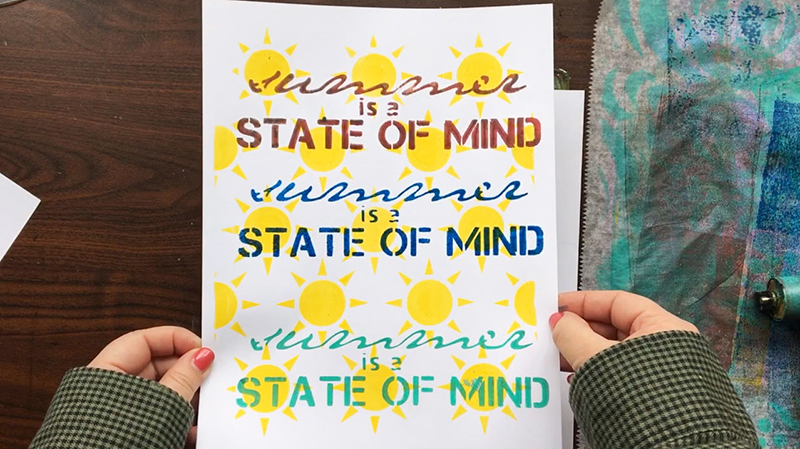 summer
is a
STATE OF MIND
summer
is a
STATE OF MIND
summer
is a
STATE OF MIND